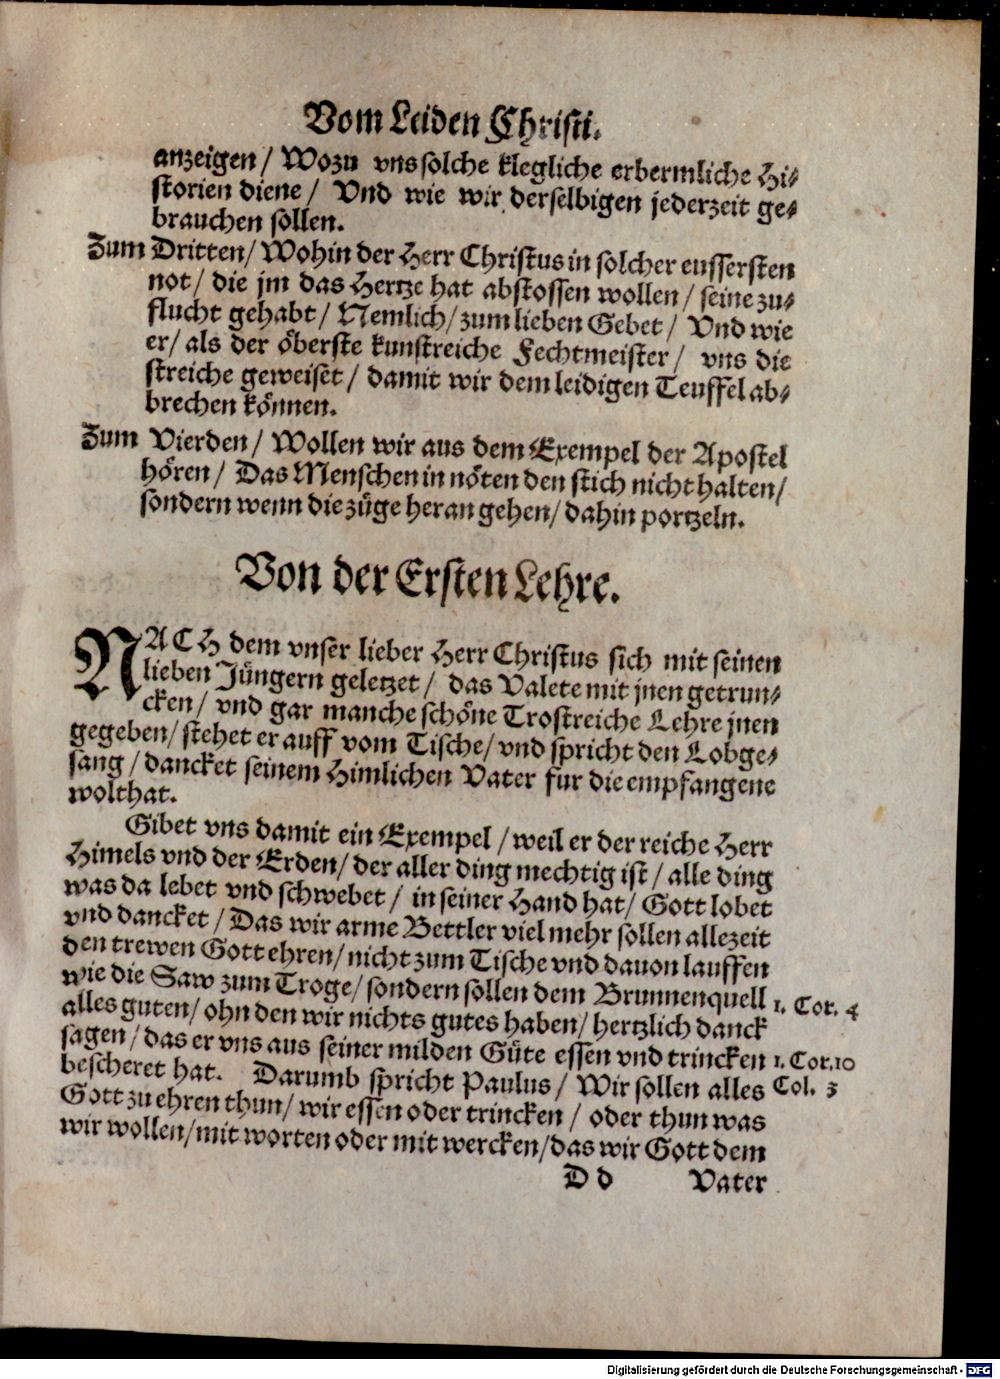 Vom Leiden Christi.
anzeigen / Wozu vns solche klegliche erbermliche Hi⸗
storien diene / Vnd wie wir derselbigen jederzeit ge⸗
brauchen sollen.
Zum Dritten / Wohin der Herr Christus in solcher eussersten
not / die jm das Hertze hat abstossen wollen / seine zu⸗
flucht gehabt / Nemlich / zum lieben Gebet / Vnd wie
er / als der öberste kunstreiche Fechtmeister / vns die
streiche geweiset / damit wir dem leidigen Teuffel ab⸗
brechen können.
Zum Vierden / Wollen wir aus dem Exempel der Apostel
hören / Das Menschen in nöten den stich nicht halten /
sondern wenn die züge heran gehen / dahin portzeln.
Von der Ersten Lehre.
NACH dem vnser lieber Herr Christus sich mit seinen
lieben Jüngern geletzet / das Valete mit jnen getrun⸗
cken / vnd gar manche schöne Trostreiche Lehre jnen
gegeben / stehet er auff vom Tische / vnd spricht den Lobge⸗
sang / dancket seinem Himlichen Vater fur die empfangene
wolthat.
Gibet vns damit ein Exempel / weil er der reiche Herr
Himels vnd der Erden / der aller ding mechtig ist / alle ding
was da lebet vnd schwebet / in seiner Hand hat / Gott lobet
vnd dancket / Das wir arme Bettler viel mehr sollen allezeit
den trewen Gott ehren / nicht zum Tische vnd dauon lauffen
wie die Saw zum Troge / sondern sollen dem Brunnenquell 1. Cor. 4
alles guten / ohn den wir nichts gutes haben / hertzlich danck
sagen / das er vns aus seiner milden Güte essen vnd trincken 1. Cor. 10
bescheret hat. Darumb spricht Paulus / Wir sollen alles Col. 3
Gott zu ehren thun / wir essen oder trincken / oder thun was
wir wollen / mit worten oder mit wercken / das wir Gott dem
D d Vater
Digitalisierung gefördert durch die Deutsche Forschungsgemeinschaft - DFG